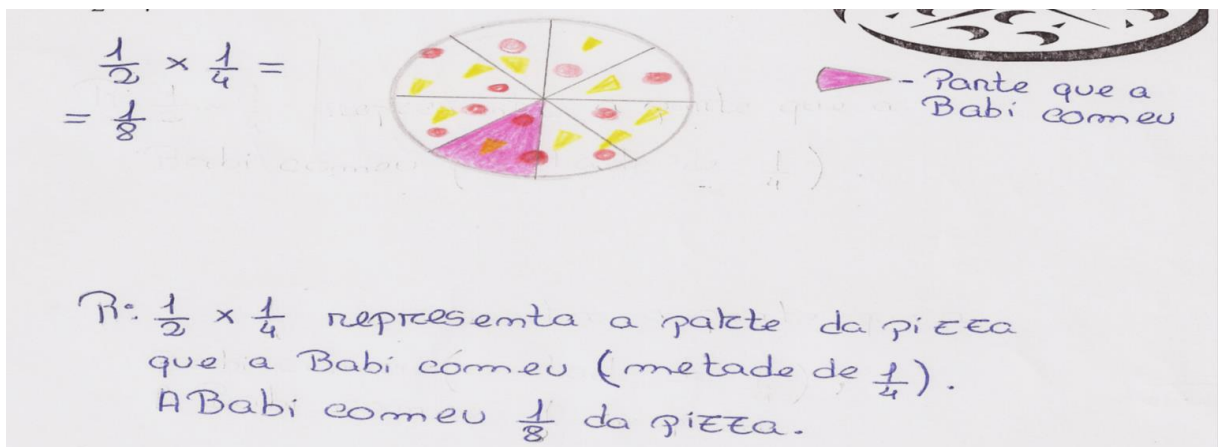 1/2 × 1/4 =
= 1/8
- Parte que a
Babi comeu
R: 1/2 × 1/4 representa a parte da pizza
que a Babi comeu (metade de 1/4).
A Babi comeu 1/8 da pizza.